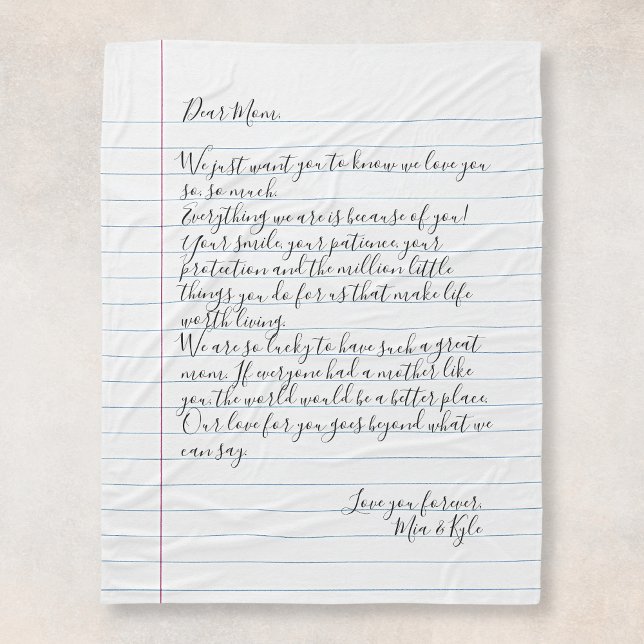 Dear Mom,
We just want you to know we love you
so, so much.
Everything we are is because of you!
Your smile, your patience, your
protection and the million little
things you do for us that make life
worth living.
We are so lucky to have such a great
mom. If everyone had a mother like
you, the world would be a better place.
Our love for you goes beyond what we
can say.
Love you forever,
Mia & Kyle